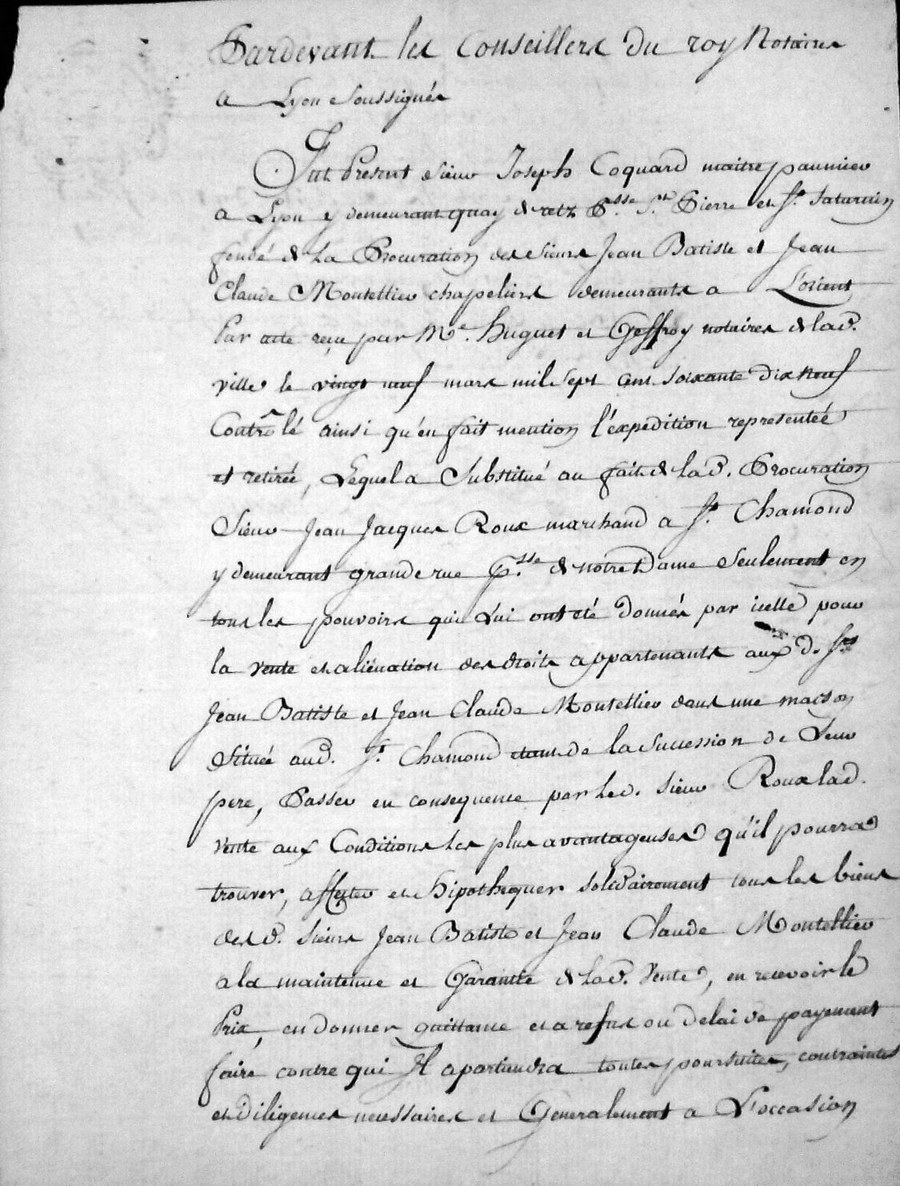 Pardevant les Conseillers du roy Notaires
a Lyon Soussignés
Fut Present Sieur Joseph Coquard maitre paumier
a Lyon y demeurant quay de retz P.sse S.nt Pierre et S.t Saturnin
fondé de La Procuration des Sieurs Jean Batiste et Jean
Claude Montellier chapeliers demeurants a L'orient
Par acte reçu par M.e huguet et Geffroy notaires de lad.
ville le vingt neuf mars mil Sept cent Soixante dix neuf
Contrôlé ainsi qu'en fait mention l'éxpédition representée
et retirée, Lequel a Substitué au fait de la d. Procuration
Sieur Jean Jacques Roux marchand a S.t Chamond
y demeurant grande rue P.sse de notre Dame Seulement en
tous les pouvoirs qui Lui ont été donnés par icelle pour
la vente et aliénation des droits appartenants aux d. S.rs
Jean Batiste et Jean Claude Montellier dans une maison
Située aud. S.t Chamond de la Succession de Leur
pere, Passer en consequence par Led. Sieur Roux lad.
vente aux Conditions les plus avantageuses qu'il pourra
trouver, affecter et hipothequer solidairement tous les biens
des d. Sieurs Jean Batiste et Jean Claude Montellier
a la maintenue et Garantie de la d. Vente, en recevoir le
Prix, en donner quittance et a refus ou delai de payement
faire contre qui Il apartiendra toutes poursuites, contraintes
et diligences necessaires et Généralement a L'occasion